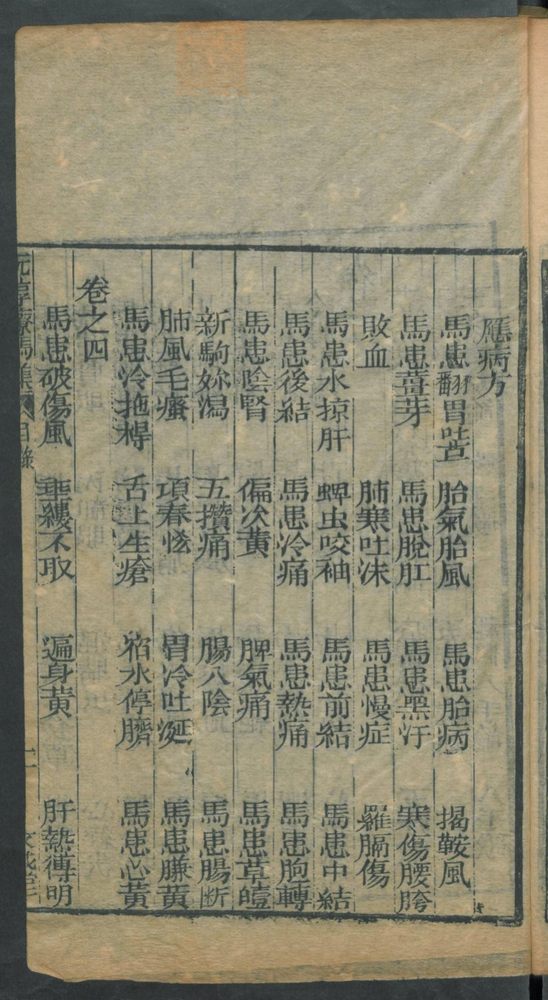 應病方
馬患翻胃吐草 胎氣胎風 馬患胎病 揭鞍風
馬患薑芽 馬患脫肛 馬患黑汗 寒傷腰胯
敗血 肺寒吐沫 馬患慢症 羅膈傷
馬患水掠肝 蜱虫咬袖 馬患前結 馬患中結
馬患後結 馬患冷痛 馬患熱痛 馬患胞轉
馬患陰腎 偏次黄 脾氣痛 馬患草噎
新駒妳瀉 五攢痛 腸入陰 馬患腸斷
肺風毛瘙 項脊㤘 胃冷吐涎 馬患膁黄
馬患冷拖桿 舌上生瘡 宿水停臍 馬患心黄
卷之四
馬患破傷風 垂縷不收 遍身黄 肝熱傳明
元亨療馬集 目錄